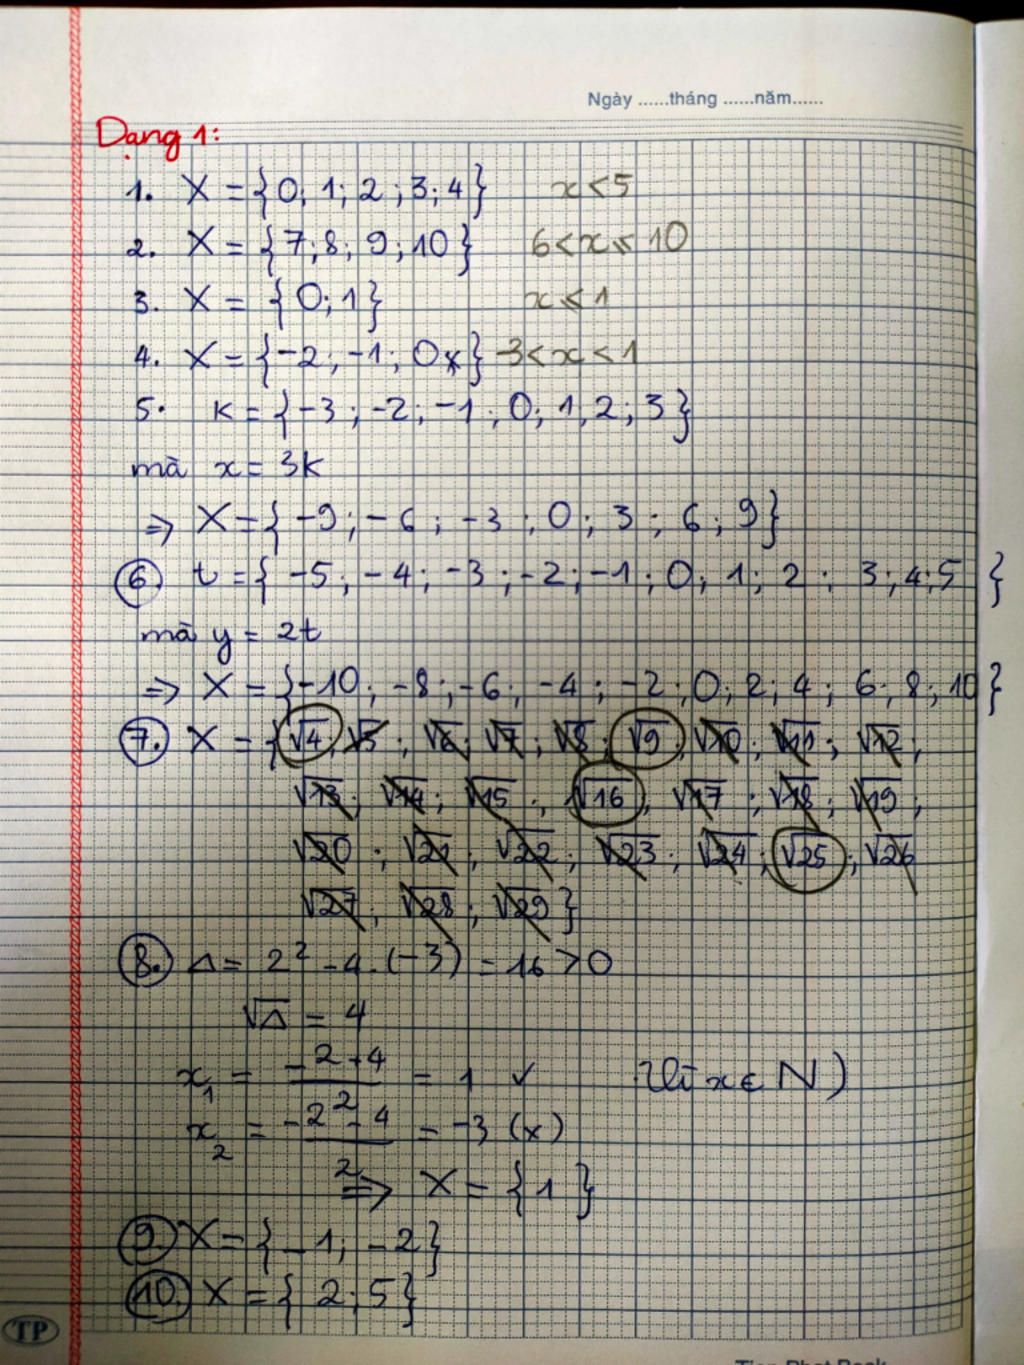 Ngày ......tháng ......năm......
Dạng 1:
1. X = {0; 1; 2; 3; 4} x < 5
2. X = {7; 8; 9; 10} 6 < x ≤ 10
3. X = {0; 1} x ≤ 1
4. X = {-2; -1; 0} -3 < x < 1
5. K = {-3; -2; -1; 0; 1, 2; 3}
mà x = 3K
=> X = {-9; -6; -3; 0; 3; 6; 9}
6 t = {-5; -4; -3; -2; -1; 0; 1; 2; 3; 4; 5}
mà y = 2t
=> X = {-10; -8; -6; -4; -2; 0; 2; 4; 6; 8; 10}
7. X = {√4; √5; √6; √7; √8; √9; √10; √11; √12;
√13; √14; √15; √16; √17; √18; √19;
√20; √21; √22; √23; √24; √25; √26
√27; √28; √29}
8. Δ = 2² - 4.(-3) = 16 > 0
√Δ = 4
x₁ = (-2+4)/2 = 1 ✓ Vì x ∈ N)
x₂ = (-2-4)/2 = -3 (x)
=> X = {1}
9 X = {-1; -2}
10. X = {2; 5}
TP